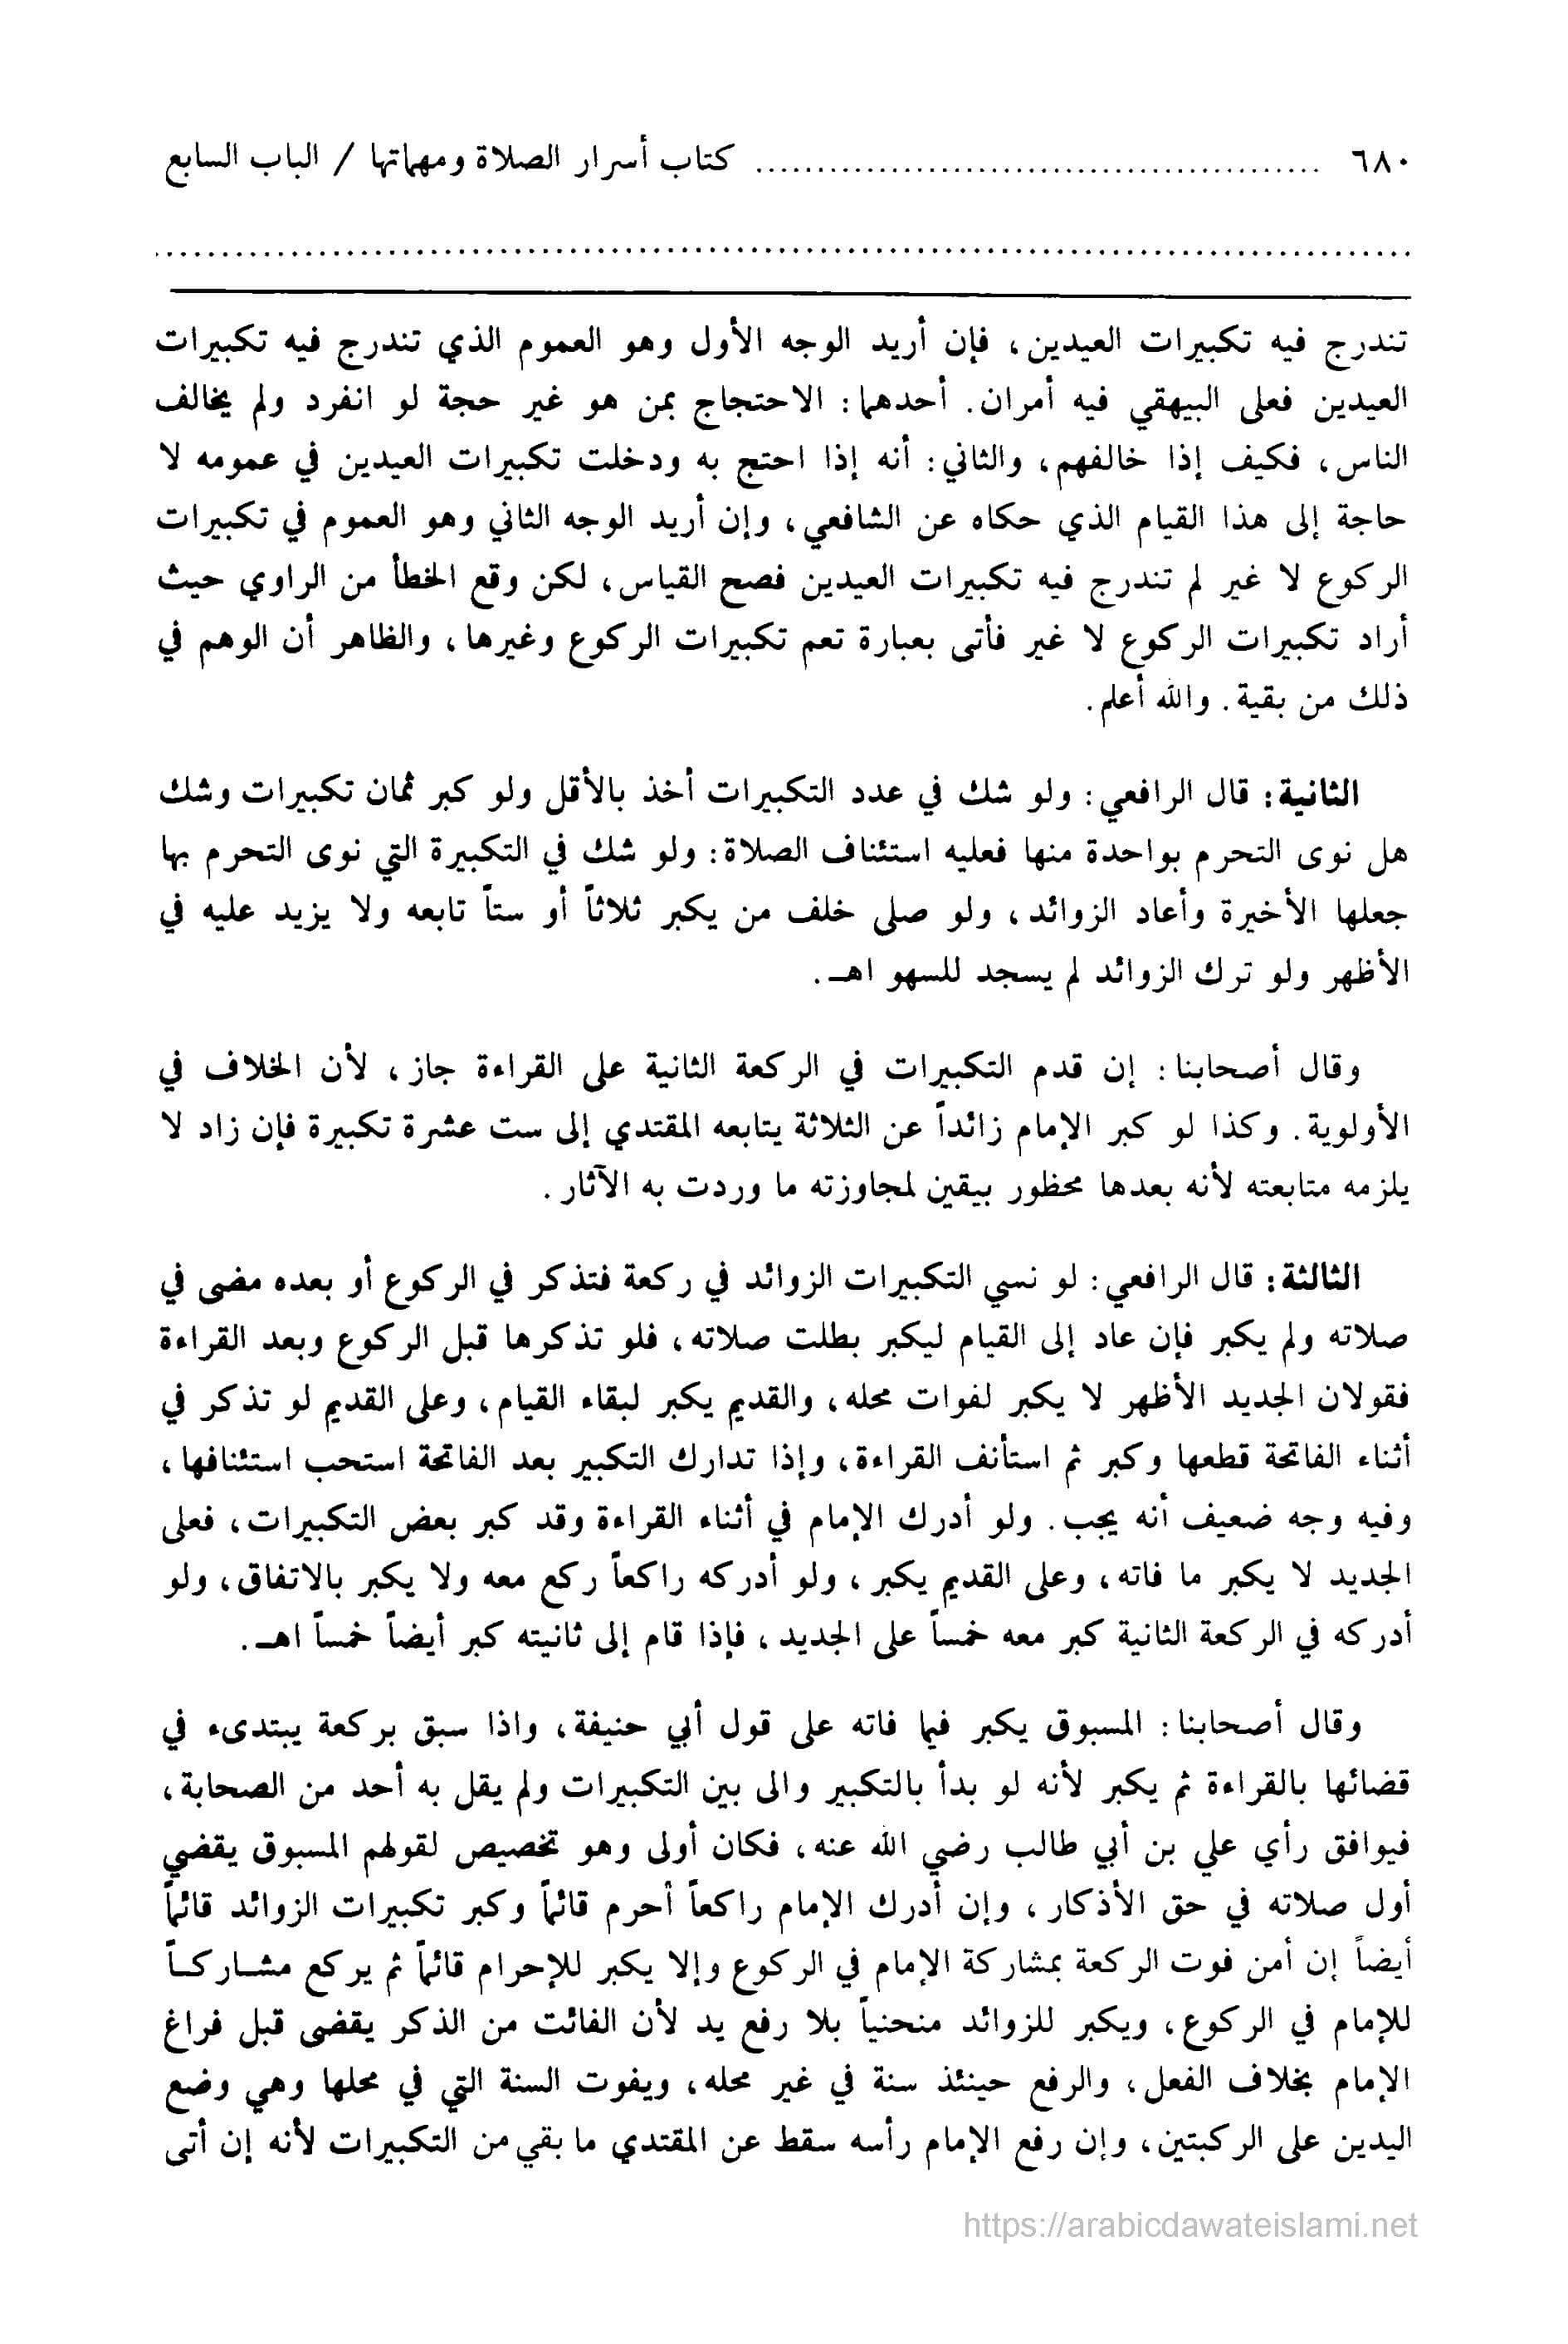 ٦٨٠ ............................................. كتاب أسرار الصلاة ومهماتها / الباب السابع
تندرج فيه تكبيرات العيدين، فإن أريد الوجه الأول وهو العموم الذي تندرج فيه تكبيرات
العيدين فعلى البيهقي فيه أمران. أحدهما: الاحتجاج بمن هو غير حجة لو انفرد ولم يخالف
الناس، فكيف إذا خالفهم، والثاني: أنه إذا احتج به ودخلت تكبيرات العيدين في عمومه لا
حاجة إلى هذا القيام الذي حكاه عن الشافعي، وإن أريد الوجه الثاني وهو العموم في تكبيرات
الركوع لا غير لم تندرج فيه تكبيرات العيدين فصح القياس، لكن وقع الخطأ من الراوي حيث
أراد تكبيرات الركوع لا غير فأتى بعبارة تعم تكبيرات الركوع وغيرها، والظاهر أن الوهم في
ذلك من بقية. والله أعلم.
الثانية: قال الرافعي: ولو شك في عدد التكبيرات أخذ بالأقل ولو كبر ثمان تكبيرات وشك
هل نوى التحرم بواحدة منها فعليه استئناف الصلاة: ولو شك في التكبيرة التي نوى التحرم بها
جعلها الأخيرة وأعاد الزوائد، ولو صلى خلف من يكبر ثلاثاً أو ستاً تابعه ولا يزيد عليه في
الأظهر ولو ترك الزوائد لم يسجد للسهو اهـ.
وقال أصحابنا: إن قدم التكبيرات في الركعة الثانية على القراءة جاز، لأن الخلاف في
الأولوية. وكذا لو كبر الإمام زائداً عن الثلاثة يتابعه المقتدي إلى ست عشرة تكبيرة فإن زاد لا
يلزمه متابعته لأنه بعدها محظور بيقين لمجاوزته ما وردت به الآثار.
الثالثة: قال الرافعي: لو نسي التكبيرات الزوائد في ركعة فتذكر في الركوع أو بعده مضى في
صلاته ولم يكبر فإن عاد إلى القيام ليكبر بطلت صلاته، فلو تذكرها قبل الركوع وبعد القراءة
فقولان الجديد الأظهر لا يكبر لفوات محله، والقديم يكبر لبقاء القيام، وعلى القديم لو تذكر في
أثناء الفاتحة قطعها وكبر ثم استأنف القراءة، وإذا تدارك التكبير بعد الفاتحة استحب استئنافها،
وفيه وجه ضعيف أنه يجب. ولو أدرك الإمام في أثناء القراءة وقد كبر بعض التكبيرات، فعلى
الجديد لا يكبر ما فاته، وعلى القديم يكبر، ولو أدركه راكعاً ركع معه ولا يكبر بالاتفاق، ولو
أدركه في الركعة الثانية كبر معه خمساً على الجديد، فإذا قام إلى ثانيته كبر أيضاً خمساً اهـ.
وقال أصحابنا: المسبوق يكبر فيما فاته على قول أبي حنيفة، واذا سبق بركعة يبتدىء في
قضائها بالقراءة ثم يكبر لأنه لو بدأ بالتكبير والى بين التكبيرات ولم يقل به أحد من الصحابة،
فيوافق رأي علي بن أبي طالب رضي الله عنه، فكان أولى وهو تخصيص لقولهم المسبوق يقضي
أول صلاته في حق الأذكار، وإن أدرك الإمام راكعاً أحرم قائماً وكبر تكبيرات الزوائد قائماً
أيضاً إن أمن فوت الركعة بمشاركة الإمام في الركوع وإلا يكبر للإحرام قائماً ثم يركع مشـاركـاً
للإمام في الركوع، ويكبر للزوائد منحنياً بلا رفع يد لأن الفائت من الذكر يقضى قبل فراغ
الإمام بخلاف الفعل، والرفع حينئذ سنة في غير محله، ويفوت السنة التي في محلها وهي وضع
اليدين على الركبتين، وإن رفع الإمام رأسه سقط عن المقتدي ما بقي من التكبيرات لأنه إن أتى
https://arabicdawateislami.net